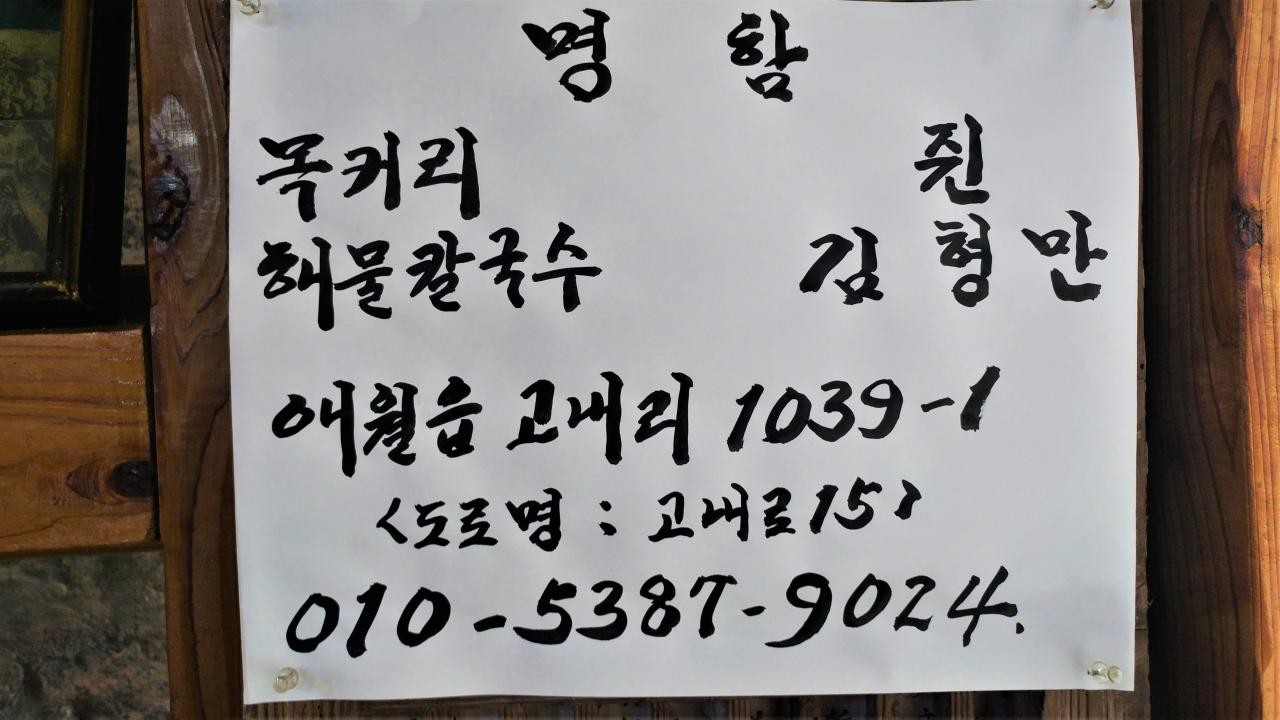 명 함
목커리 쥔
해물칼국수 김 형 만
애월읍 고내리 1039-1
<도로명 : 고내로15>
010-5387-9024.